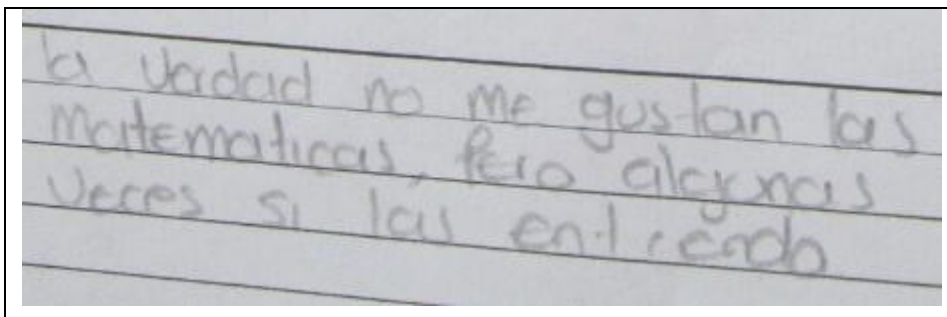 la verdad no me gustan las
matematicas, pero algunas
veces si las entiendo